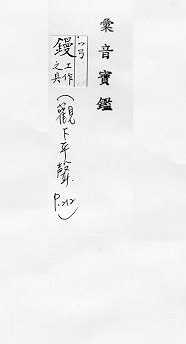 彙音寶鑑
鏝工作之具
(觀下平聲
P.212)